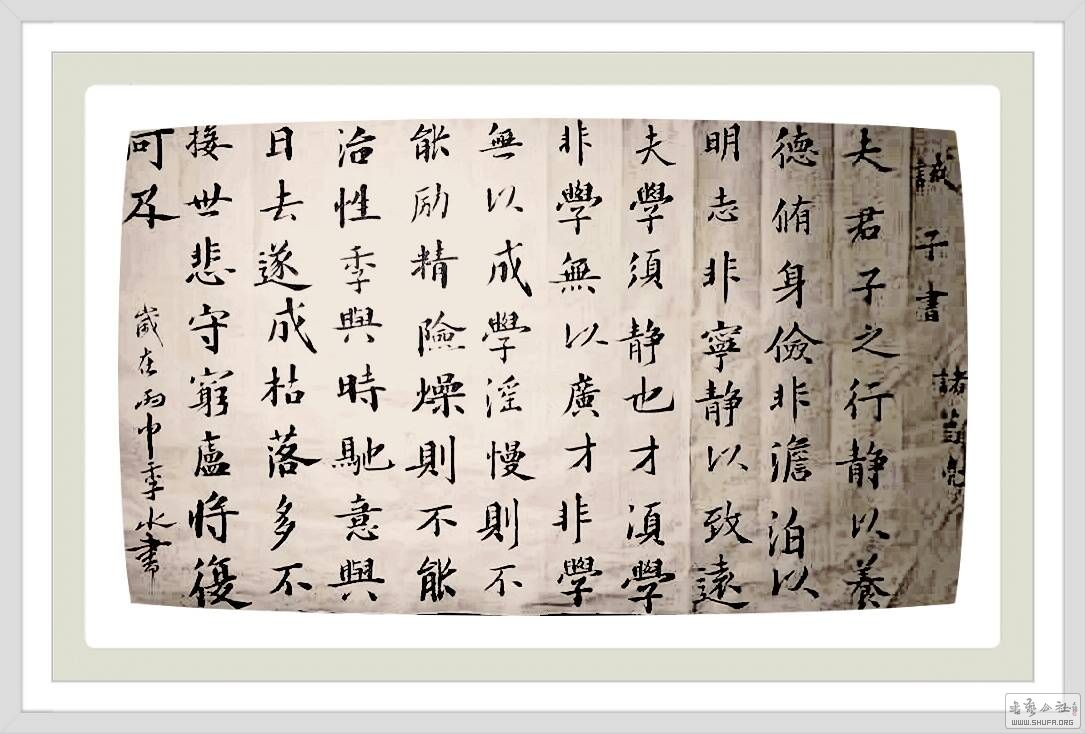 誡子書 諸葛亮
夫君子之行静以養
德脩身儉非澹泊以
明志非寧静以致遠
夫學須静也才湏學
非學無以廣才非學
無以成學淫慢則不
能励精險燥則不能
治性秊與時馳意與
日去遂成枯落多不
接世悲守窮廬將復
可及
歲在丙申秊水書
书艺公社
WWW.SHUFA.ORG